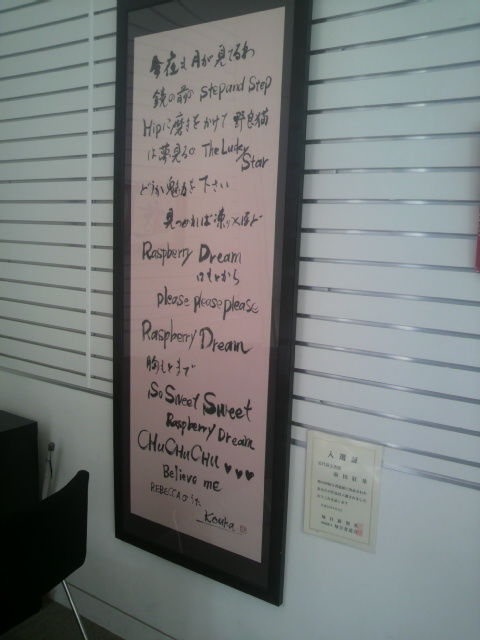 今夜も月が見てるわ
鏡の前 Step and Step
Hipに磨きをかけて 野良猫
は夢見るの The Lucky
Star
どうか魅力を下さい
見つめれば凍りつくほど
Raspberry Dream
please please please
Raspberry Dream
胸もとまで
So Sweet Sweet
Raspberry Dream
CHU CHU CHU ♥♥♥
Believe me
REBECCAのうた
入選証